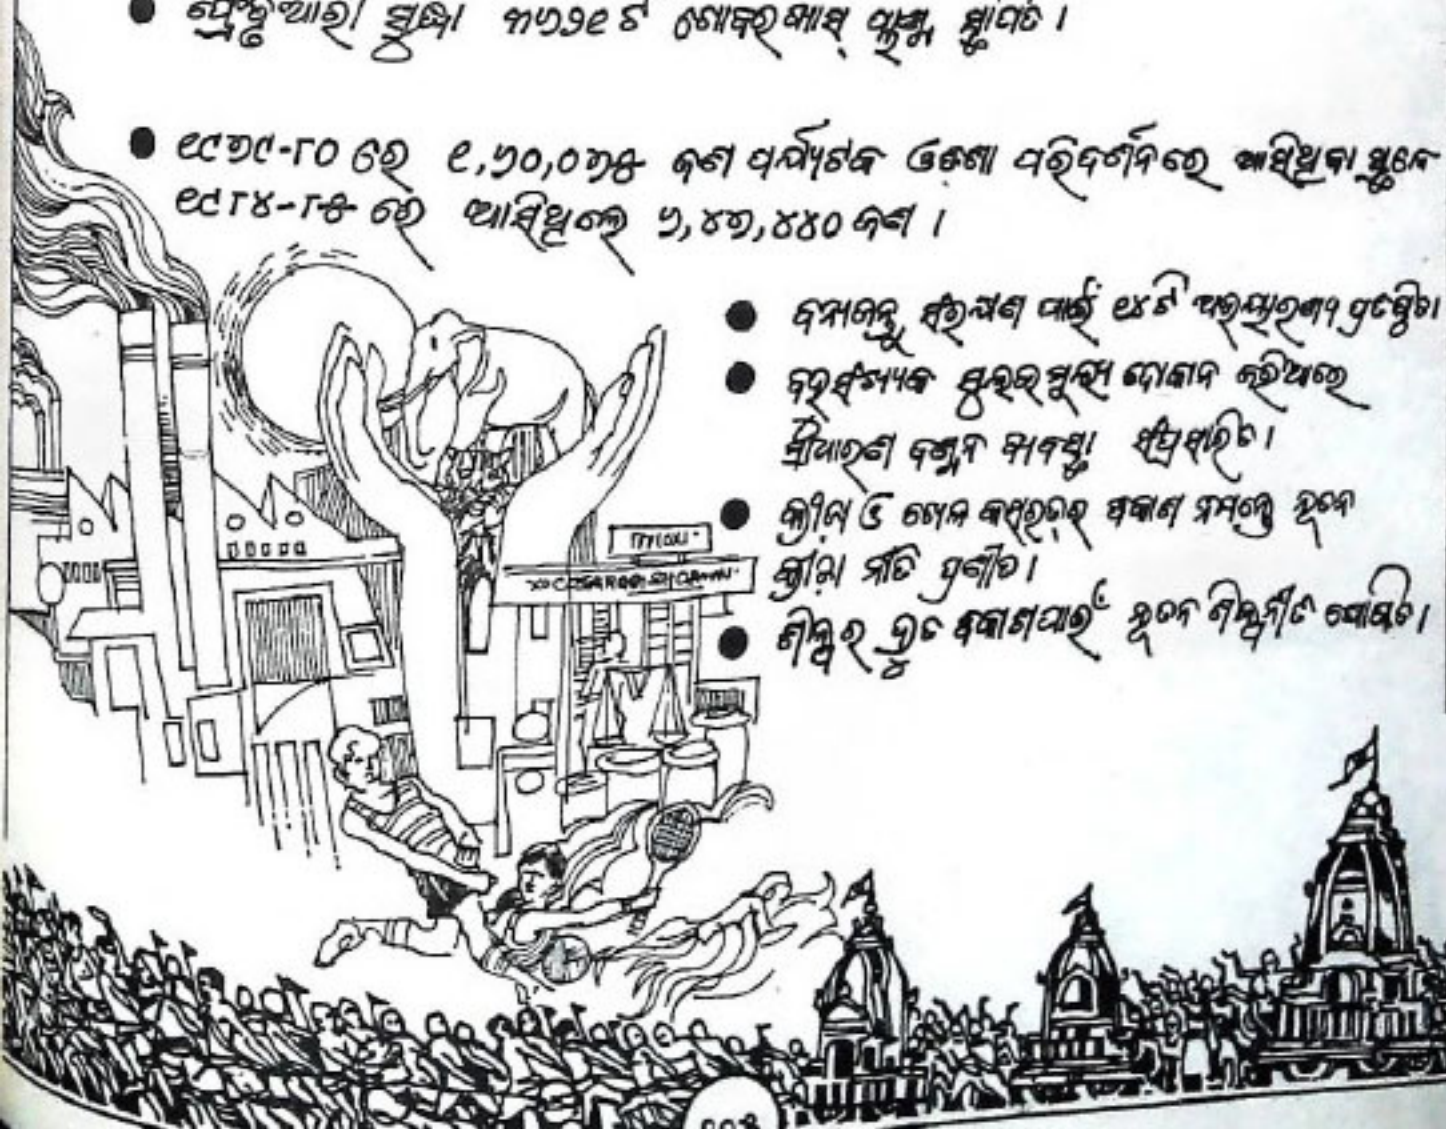 ଫେବୃଆରୀ ସୁଦ୍ଧା ୩୬୨୧ଟି ଗୋବର ଗ୍ୟାସ୍ ପ୍ଲାଣ୍ଟ ସ୍ଥାପିତ ।
୧୯୭୯-୮୦ ରେ ୧,୬୦,୦୭୫ ଜଣ ପର୍ଯ୍ୟଟକ ଓଡ଼ିଶା ପରିଦର୍ଶନରେ ଆସିଥିବା ସ୍ଥଳେ
୧୯୮୪-୮୫ ରେ ଆସିଥିଲେ ୬,୪୭,୪୪୦ ଜଣ ।
ବନ୍ୟଜନ୍ତୁ ସଂରକ୍ଷଣ ପାଇଁ ୧୪ଟି ଅଭୟାରଣ୍ୟ ପ୍ରତିଷ୍ଠିତ।
ବହୁସଂଖ୍ୟକ ସୁଲଭ ମୂଲ୍ୟ ଦୋକାନ ଜରିଆରେ
ସାଧାରଣ ବଣ୍ଟନ ବ୍ୟବସ୍ଥା ସଂପ୍ରସାରିତ।
କ୍ରୀଡ଼ା ଓ ଖେଳ କସରତର ବିକାଶ ନିମନ୍ତେ ନୂତନ
କ୍ରୀଡ଼ା ନୀତି ପ୍ରଣୀତ।
ଶିଳ୍ପର ଦ୍ରୁତ ବିକାଶ ପାଇଁ ନୂତନ ଶିଳ୍ପନୀତି ଘୋଷିତ।